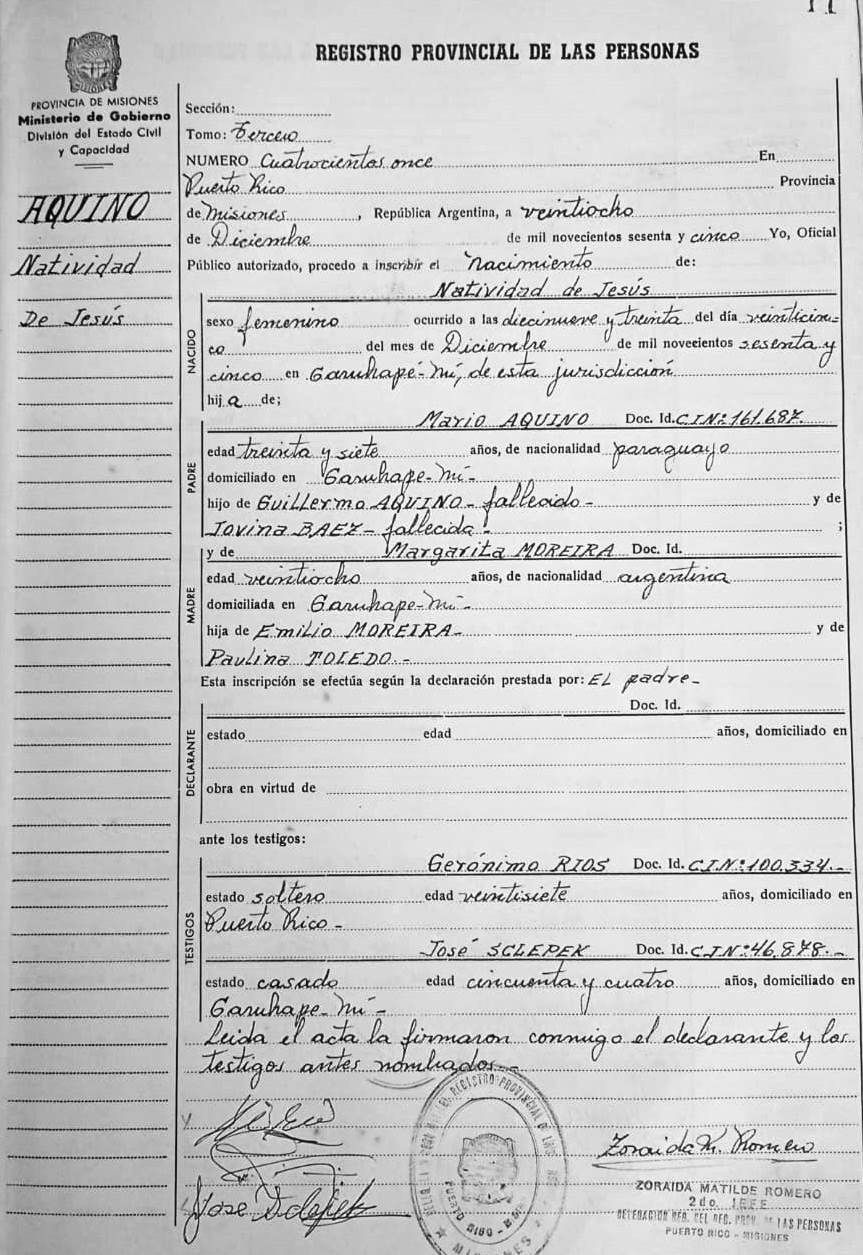 REGISTRO PROVINCIAL DE LAS PERSONAS
PROVINCIA DE MISIONES
Ministerio de Gobierno
División del Estado Civil
y Capacidad
AQUINO
Natividad
De Jesús
Sección:
Tomo: Tercero
NUMERO Cuatrocientos once En
Puerto Rico Provincia
de Misiones, República Argentina, a veintiocho
de Diciembre de mil novecientos sesenta y cinco Yo, Oficial
Público autorizado, procedo a inscribir el nacimiento de:
Natividad de Jesús
NACIDO
sexo femenino ocurrido a las diecinueve y treinta del día veinticin-
co del mes de Diciembre de mil novecientos sesenta y
cinco en Garuhapé-Mí, de esta jurisdicción
hija de;
Mario AQUINO Doc. Id. C.I.Nº 161.687.
PADRE
edad treinta y siete años, de nacionalidad paraguayo
domiciliado en Garuhape-Mí-
hijo de Guillermo AQUINO - fallecido - y de
Jovina BAEZ - fallecida - ;
y de Margarita MOREIRA Doc. Id.
MADRE
edad veintiocho años, de nacionalidad argentina
domiciliada en Garuhape-Mí-
hija de Emilio MOREIRA - y de
Paulina TOLEDO. -
Esta inscripción se efectúa según la declaración prestada por: EL padre -
Doc. Id.
DECLARANTE
estado edad años, domiciliado en
obra en virtud de
ante los testigos:
Gerónimo RIOS Doc. Id. C.I.Nº 100.334. -
TESTIGOS
estado soltero edad veintisiete años, domiciliado en
Puerto Rico -
José SCLEPEK Doc. Id. C.I.Nº 46.878. -
estado casado edad cincuenta y cuatro años, domiciliado en
Garuhape-Mí -
Leida el acta la firmaron conmigo el declarante y los
testigos antes nombrados. -
Zoraida M. Romero
ZORAIDA MATILDE ROMERO
2do. JEFE
DELEGACION REG. DEL REG. PROV. DE LAS PERSONAS
PUERTO RICO - MISIONES
Jose Sclepek
REGISTRO PROVINCIAL DE
PUERTO RICO
MISIONES